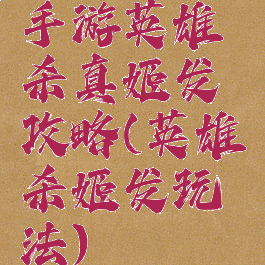 手游英雄
杀真姬发
攻略(英雄
杀姬发玩
法)